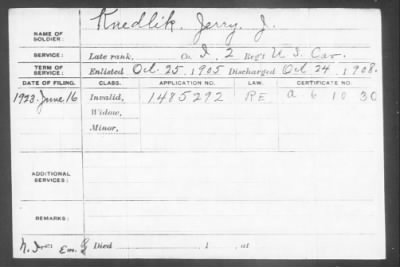 NAME OF SOLDIER: Knedlik, Jerry, J.
SERVICE: Late rank, Co. I, 2 Reg't U.S. Cav.
TERM OF SERVICE: Enlisted Oct. 25, 1905 Discharged Oct 24, 1908.
DATE OF FILING. CLASS. APPLICATION NO. LAW. CERTIFICATE NO.
1923. June 16 Invalid, 1485292 RE a 6 10 30
Widow,
Minor,
ADDITIONAL SERVICES:
REMARKS:
Died , 1 , at